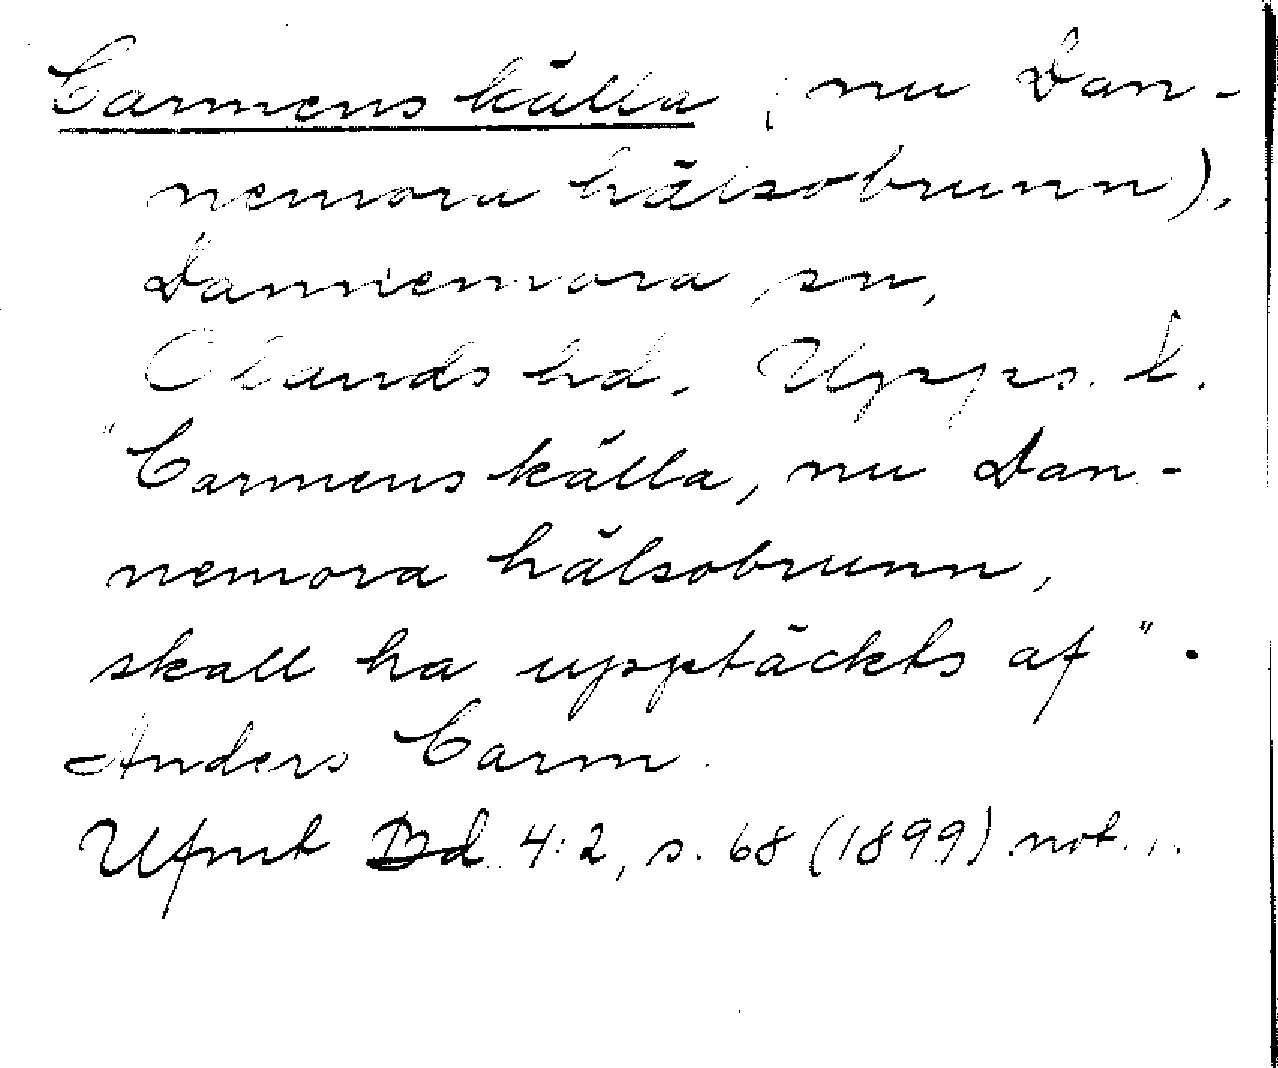 Carmens källa (nu Dan-
nemora hälsobrunn),
Dannemora sn,
Olands hd. Upps. l.
"Carmens källa, nu Dan-
nemora hälsobrunn,
skall ha upptäckts af".
Anders Carm.
Ufmt Bd 4:2, s. 68 (1899) not. 1.